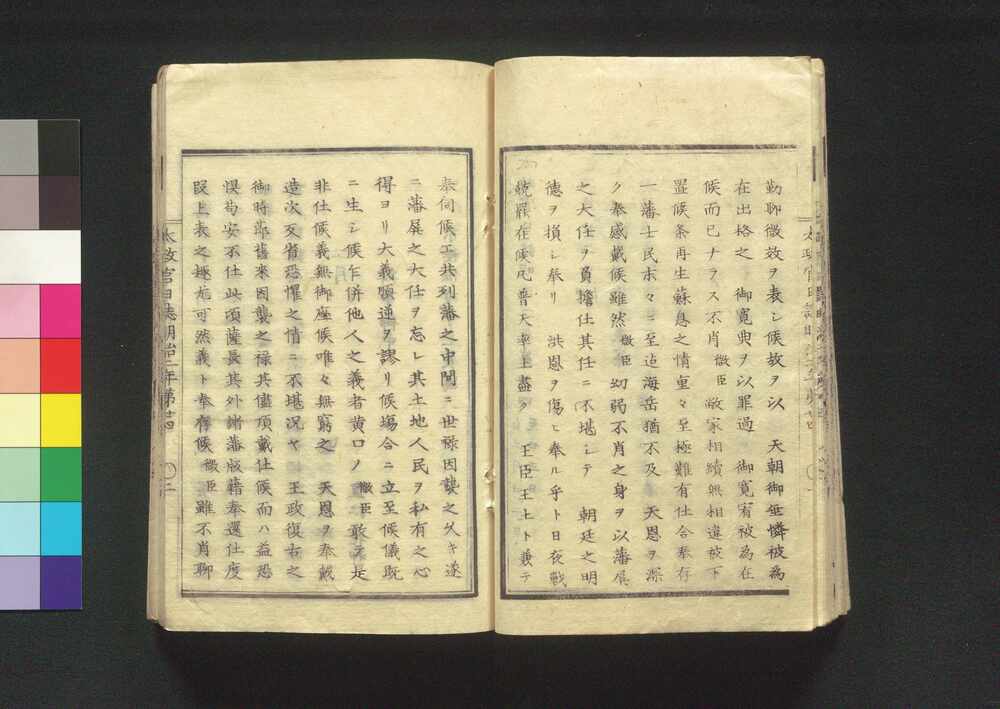 勤聊微效ヲ表シ候故ヲ以 天朝御垂憐被為
在出格之 御寛典ヲ以罪過 御寛宥被為在
候而已ナラス不肖微臣敝家相続無相違被下
置候条再生蘇息之情重々至極難有仕合奉存
一藩士民末々ニ至迠海岳猶不及 天恩ヲ深
ク奉感戴候雖然微臣幼弱不肖之身ヲ以藩屏
之大任ヲ負擔仕其任ニ不堪シテ 朝廷之明
徳ヲ損シ奉リ 洪恩ヲ傷ヒ奉ル乎ト日夜戰
兢罷在候凡普天率土盡ク 王臣王土ト兼テ
奉伺候エ共列藩之中間ニ世禄因襲之久キ遂
ニ藩屏之大任ヲ忘レ其土地人民ヲ私有之心
得ヨリ大義順逆ヲ謬リ候場合ニ立至候儀既
ニ生シ候乍併他人之義者黄口ノ微臣敢テ是
非仕候義無御座候唯々無窮之 天恩ヲ奉戴
造次反省恐懼之情ニ不堪況ヤ 王政復古之
御時節舊来因襲之禄共儘頂戴仕候而ハ益恐
悮苟安不仕此頃薩長其外諸藩版籍奉還仕度
段上表之趣尤可然義ト奉存候微臣雖不肖聊
太政官日誌明治二年第廿四 二